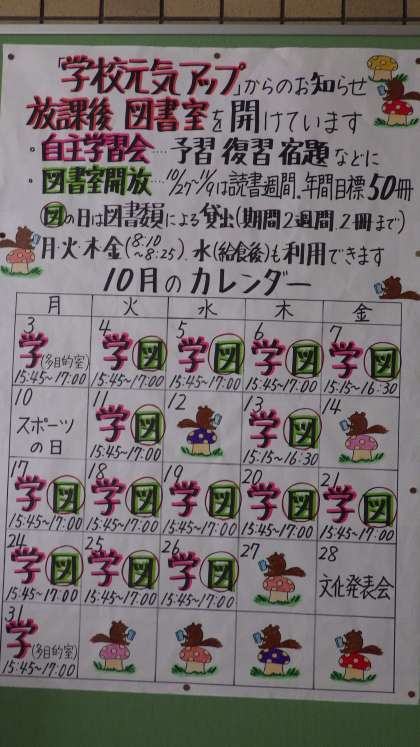 「学校元気アップ」からのお知らせ
放課後 図書室を開けています
・自主学習会…予習 復習 宿題などに
・図書室開放…10/27~11/9は読書週間.年間目標50冊
図の日は図書委員による貸出(期間2週間.2冊まで)
月・火・木・金(8:10~8:25).水(給食後)も利用できます
10月のカレンダー
月 火 水 木 金
3 4 5 6 7
学(多目的室) 学図 学図 学図 学図
15:45~17:00 15:45~17:00 15:45~17:00 15:45~17:00 15:15~16:30
10 11 12 13 14
スポーツの日 学図 学図
15:45~17:00 15:15~16:30
17 18 19 20 21
学図 学図 学図 学図 学図
15:45~17:00 15:45~17:00 15:45~17:00 15:45~17:00 15:45~17:00
24 25 26 27 28
学図 学図 学図 文化発表会
15:45~17:00 15:45~17:00 15:45~17:00
31
学(多目的室)
15:45~17:00